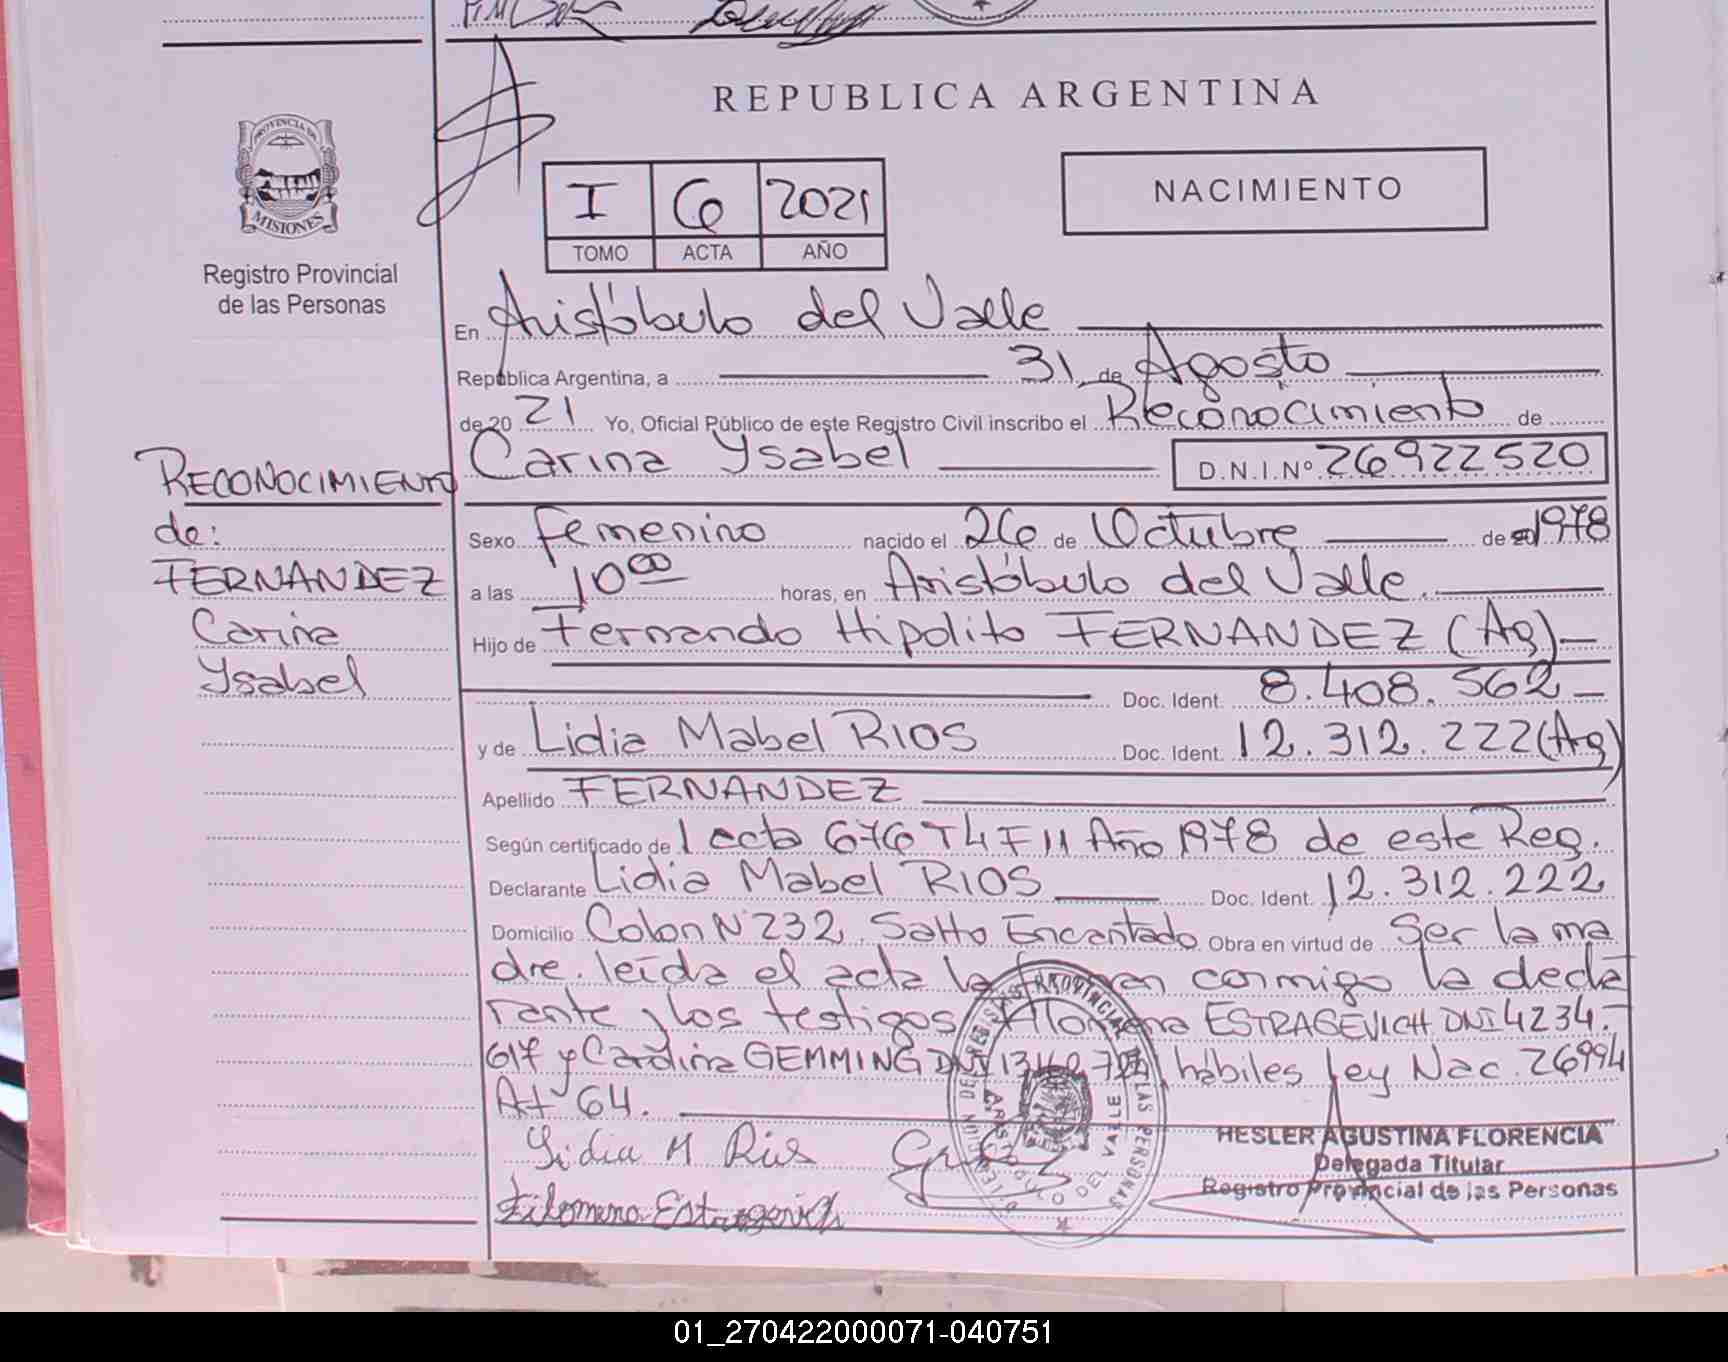 REPUBLICA ARGENTINA
PROVINCIA DE
MISIONES
Registro Provincial
de las Personas
I 6 2021
TOMO ACTA AÑO
NACIMIENTO
En Aristóbulo del Valle
República Argentina, a 31 de Agosto
de 20 21 Yo, Oficial Público de este Registro Civil inscribo el Reconocimiento de
Carina Ysabel D.N.I.Nº 26922520
RECONOCIMIENTO
de:
FERNANDEZ
Carina
Ysabel
Sexo femenino nacido el 26 de Octubre de 1978
a las 10 00 horas, en Aristóbulo del Valle.
Hijo de Fernando Hipolito FERNANDEZ (Ag)
Doc. Ident. 8.408.562
y de Lidia Mabel RIOS Doc. Ident. 12.312.222 (Ag)
Apellido FERNANDEZ
Según certificado de 1 acta 676 T4 F11 Año 1978 de este Reg.
Declarante Lidia Mabel RIOS Doc. Ident. 12.312.222
Domicilio Colon Nº 232, Salto Encantado Obra en virtud de Ser la ma
dre. leída el acta la firman conmigo la decla
rante y los testigos Filomena ESTRAGEVICH DNI 4234.
617 y Carolina GEMMING DNI hábiles Ley Nac. 26994
At 64.
Lidia M Rios
Filomena Estragevich
HESLER AGUSTINA FLORENCIA
Delegada Titular
Registro Provincial de las Personas
01_270422000071-040751